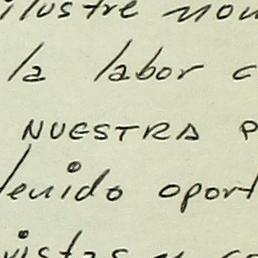 ilustre nom
la labor c
NUESTRA P
enido oport
vistas y co